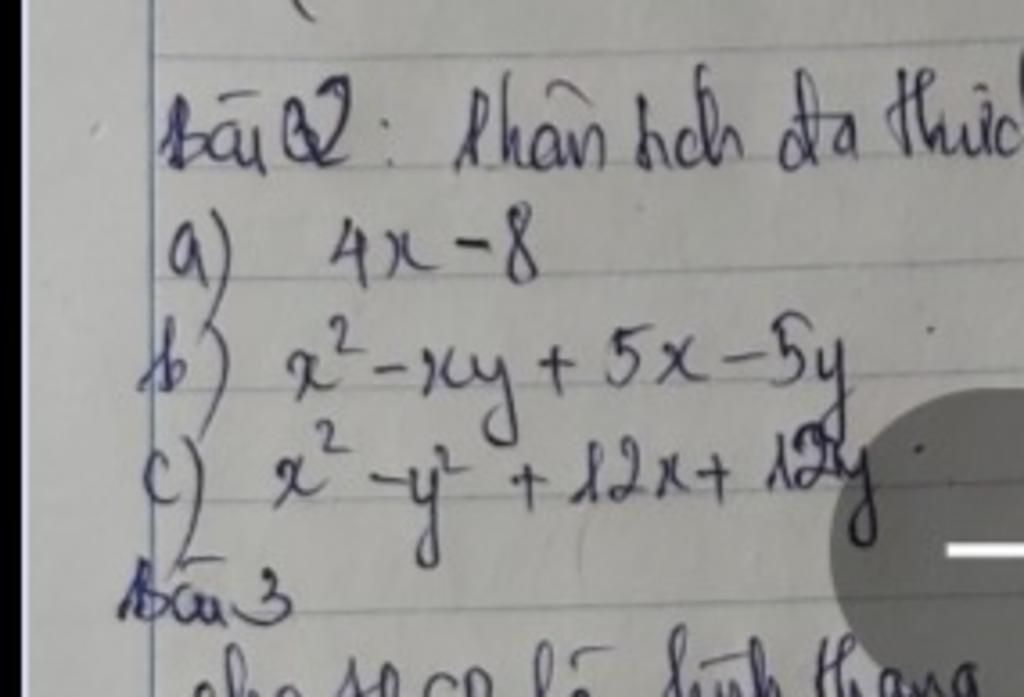 Bài 2: Phân tích đa thức
a) 4x - 8
b) x² - xy + 5x - 5y
c) x² - y² + 12x + 12y
Bài 3
cho ABCD là hình thang